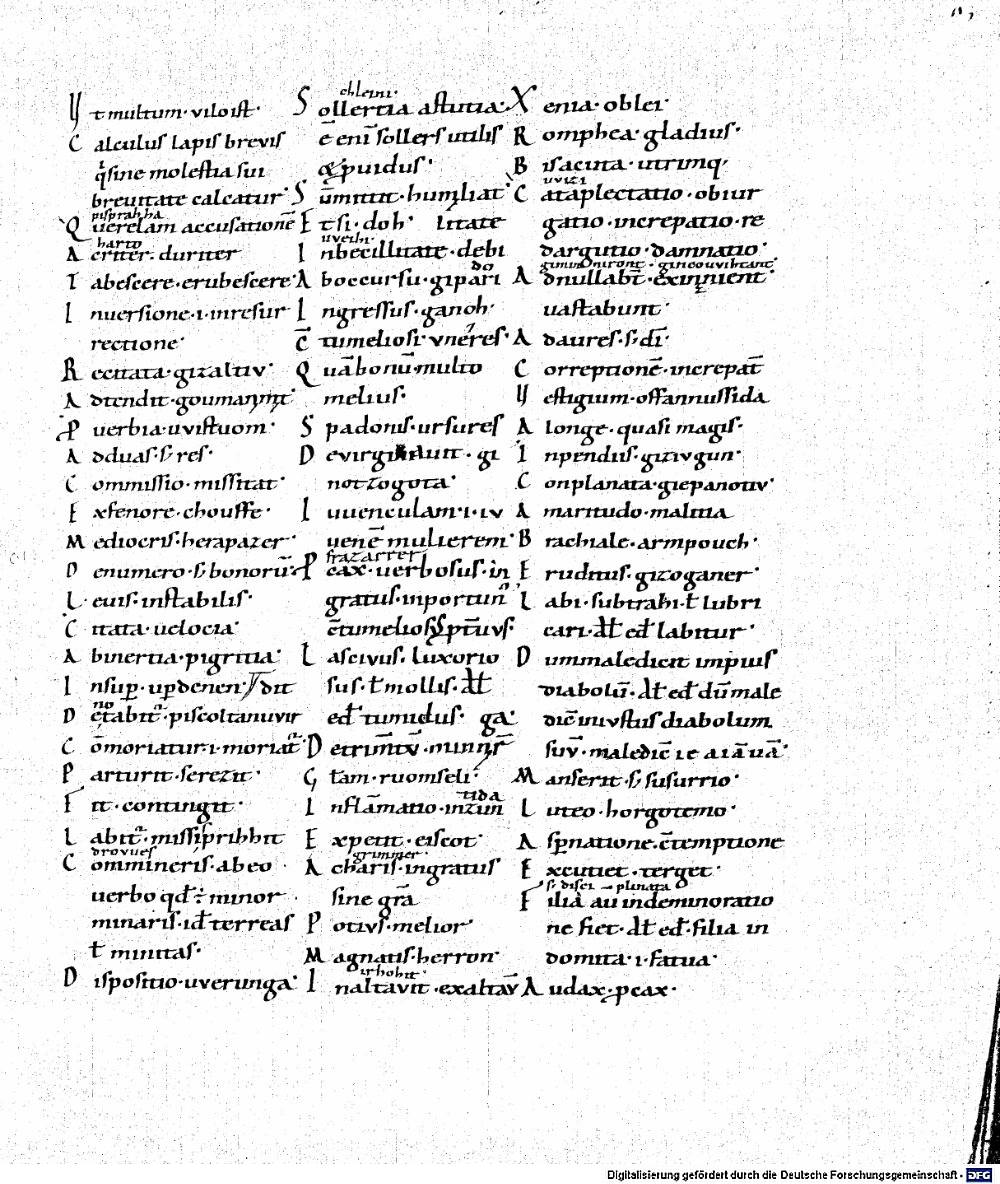 Ut multum · viloist ·
Calculus lapis brevis
q̇ sine molestia sui
brevitate calcatur ·
pisprahha
Querelam accusationē
harto
Acriter · duriter
Tabescere · erubescere
Inversione · i · inresur
rectione ·
Recitata · gizaltiv ·
Adtendit · goumanynt
Pverbia · uvistuom ·
Adduas · s · res ·
Commissio · missitat ·
Exfenore · chouffe ·
Mediocris · herapazer ·
Denumero · s · bonorū ·
Levis · instabilis ·
Citata · velocia ·
Abinertia · pigritia ·
Insup · updenen · ddit
no
Dētabit · piscoltanuvir
Cōmoriatur · i · moriat
Parturit · serezit ·
Fit · contingit ·
Labit · missipribhit
drovues
Commineris · abeo
verbo qd ÷ minor
minaris · id terreas
ł minitas ·
Dispositio · uverunga ·
chleini ·
Sollertia astutia ·
ē enī sollers utilis
& puidus ·
Sūmittit · humiliat ·
Etsi · doh · litate
uveihi ·
Inbecillitate · debi
do
Aboccursu · gipari
Ingressus · ganoh ·
C̄tumeliosi · vneres ·
Quā bonū · multo
melius ·
Spadonis · ursures
Devirginavit · gi
notzogota ·
Iuvenculam · i · iv
venē mulierem ·
frazarrer
Pcax · verbosus · in
gratus · inportun
c̄tumelios
Lascivus · luxorio
sus · ł mollis · ał
ed · tumidus · ga
Detrimtv · minnir
Gtam · ruomseli ·
tida
Inflāmatio · inzun
Expetit · eiscot ·
grimmer
Acharis · ingratus
sine grā
Potivs · melior ·
Magnatis · herron ·
irhohit ·
Inaltavit · exaltav
Xenia · oblei ·
Romphea · gladius ·
Bisacuta · utrimq ·
uvizi
Cataplectatio · obiur
gatio · increpatio · re
dargutio · damnatio ·
gimmniront · gineouvihtant
Adnullabt · exinnient ·
vastabunt ·
Adaures · s · dī ·
Correptionē · increpat
Vestigium · offannussida
Alonge · quasi magis ·
Inpendiis · gizivgun ·
Conplanata · giepanotiv ·
Amaritudo · malitia
Brachiale · armpouch ·
Eruditus · gizoganer ·
Labi · subtrahi · ł lubri
cari · ał ed labitur ·
Dum maledicit impius
diabolū · ał ed dū male
dic̄ inivstus diabolum
suv̄ · maledic̄ ie aiā uā ·
Manserit · s · susurrio ·
Luteo · horgotemo ·
Aspnatione · c̄temptione
Excutiet · terget ·
s · disci — plinata
Filia au indeminoratio
ne fiet · ał ed · filia in
domita · i · fatua ·
Audax · pcax ·
Digitalisierung gefördert durch die Deutsche Forschungsgemeinschaft - DFG